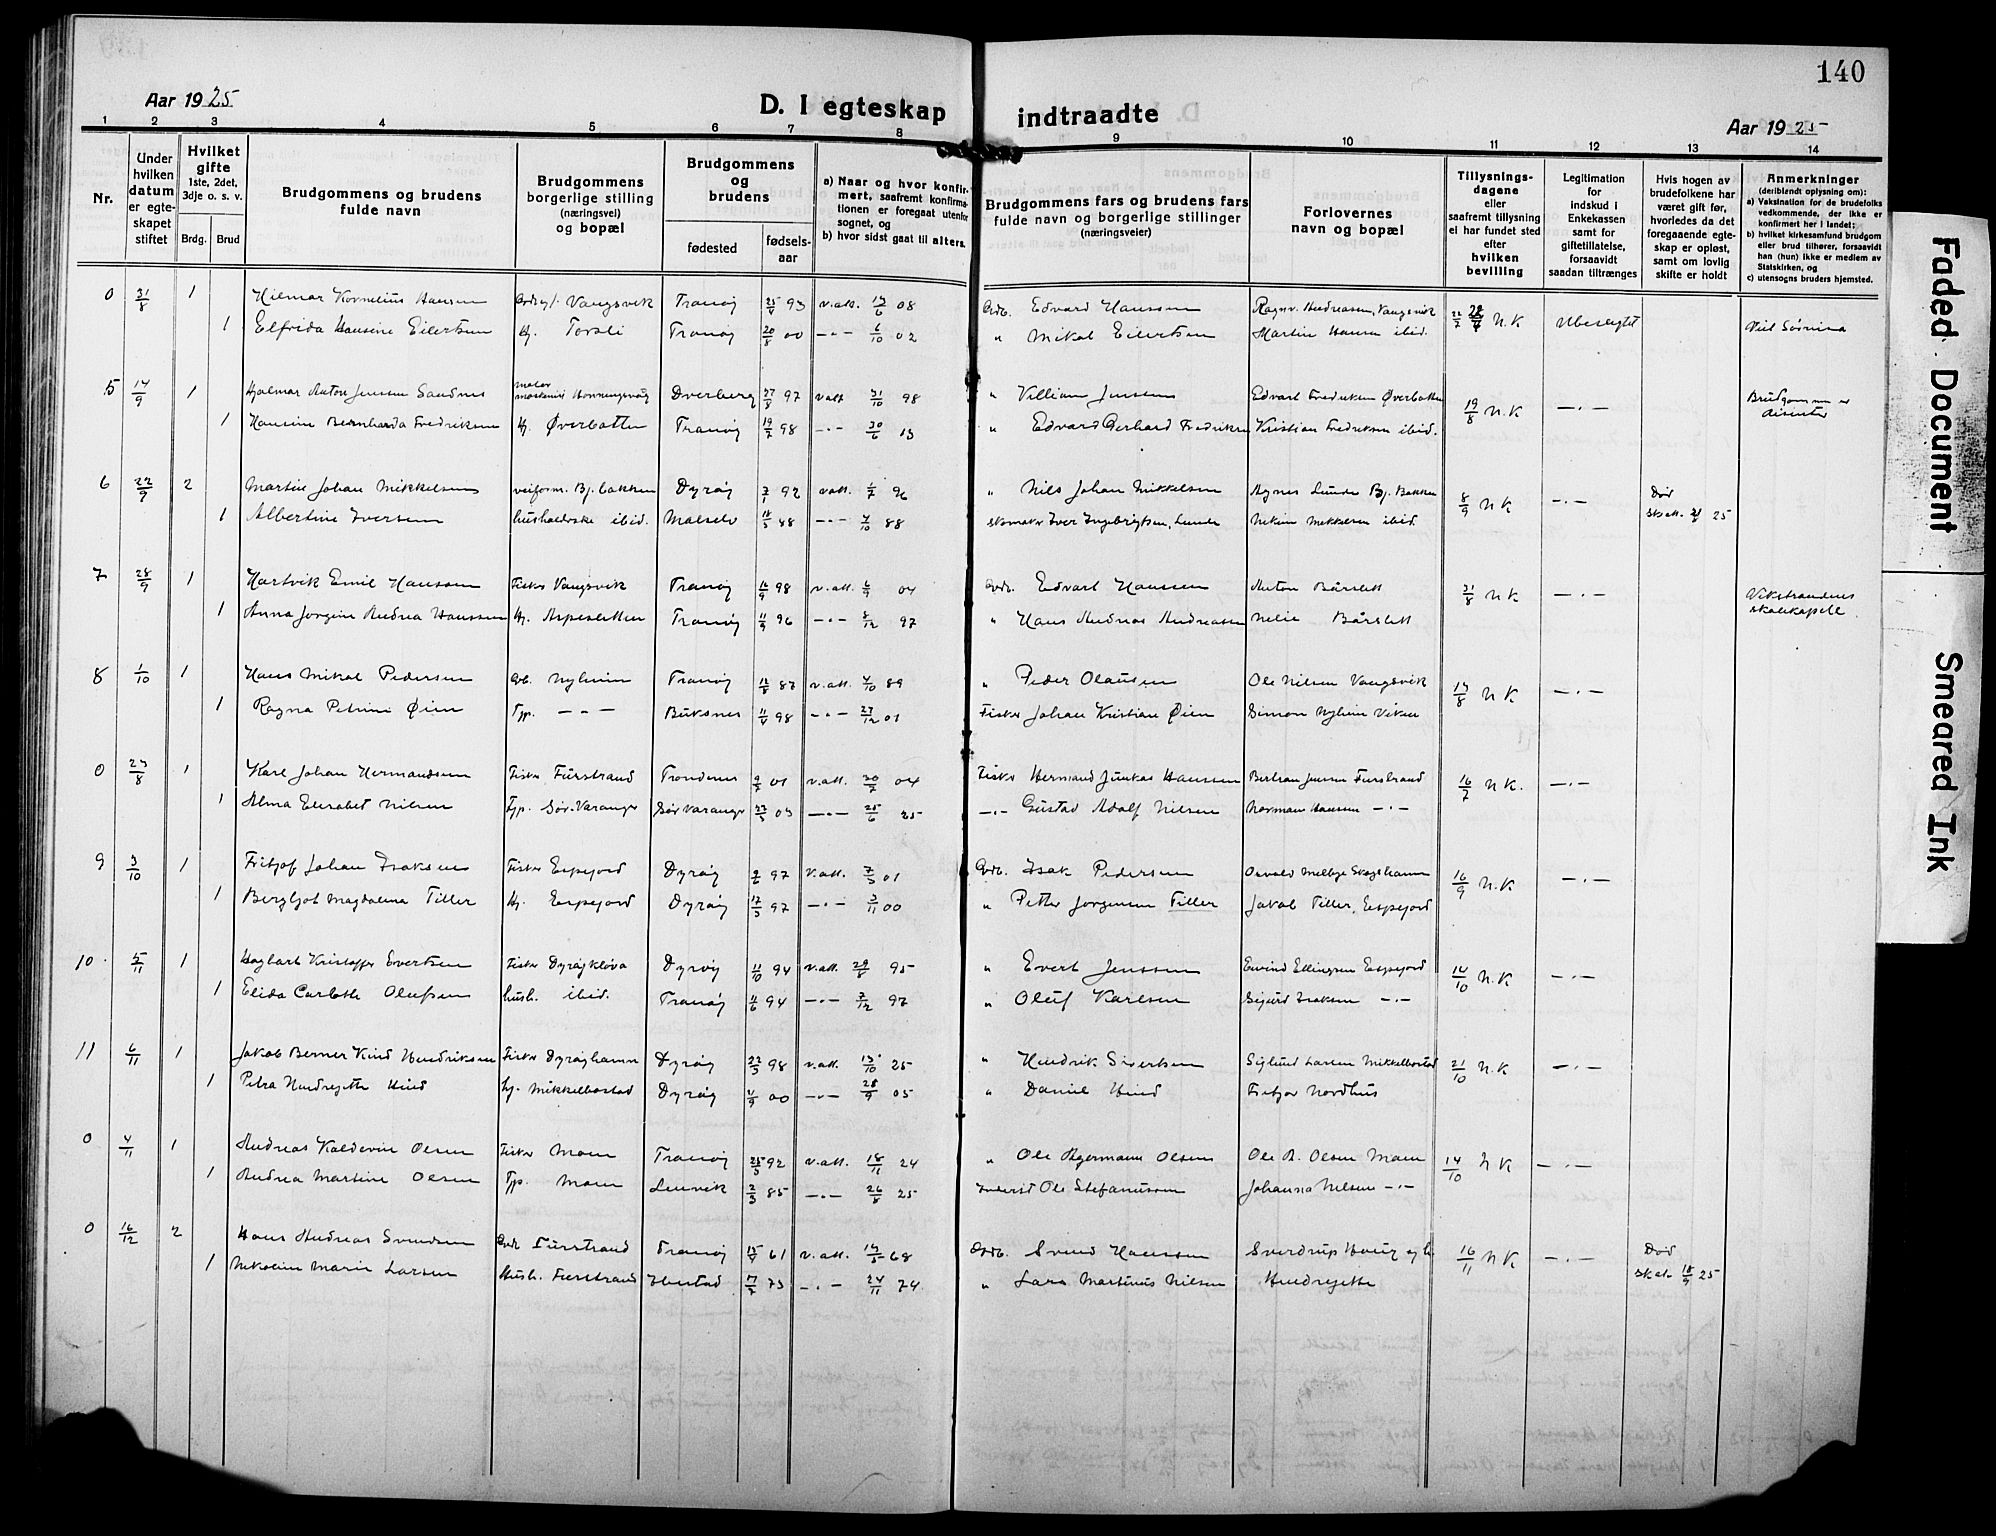 140
Aar 1925
D. I egteskap indtraadte
Aar 1925
1 2 3 4 5 6 7 8 9 10 11 12 13 14
Nr.
Under hvilken datum er egteskapet stiftet
Hvilket gifte 1ste, 2det, 3dje o. s. v.
Brdg. Brud
Brudgommens og brudens fulde navn
Brudgommens borgerlige stilling (næringsvei) og bopæl
Brudgommens og brudens
fødested
fødselsaar
a) Naar og hvor konfirmert, saafremt konfirmationen er foregaat utenfor sognet, og
b) hvor sidst gaat til alters.
Brudgommens fars og brudens fars fulde navn og borgerlige stillinger (næringsveier)
Forlovernes navn og bopæl
Tillysningsdagene eller saafremt tillysning ei har fundet sted efter hvilken bevilling
Legitimation for indskud i Enkekassen samt for giftetillatelse, forsaavidt saadan tiltrænges
Hvis nogen av brudefolkene har været gift før, hvorledes da det foregaaende egteskap er opløst, samt om lovlig skifte er holdt
Anmerkninger (deriblandt oplysning om):
a) Vaksination for de brudefolks vedkommende, der ikke er konfirmert her i landet;
b) hvilket kirkesamfund brudgom eller brud tilhører, forsaavidt han (hun) ikke er medlem av Statskirken, og
c) utensogns bruders hjemsted.
0 31/8 1 Hilmar Kornelius Hansen Vangsvik Tranøy 93 v.att. 08 Grdb. Edvard Hanssen Ragnv. Andreassen, Vangsvik N.K Ubeseigtet
1 Elfrida Hansine Eilertsen Hj. Torsli Tranøy 20/8 00 -"- 6/10 02 " Mikal Eilertsen Martin Hansen ibid.
5 14/9 1 Hjalmar Anton Jensen Sandnes Honningsvåg Dverberg 27/8 97 v.att 31/10 98 " Villiam Jensen Edvart Fredriksen Øverbotten 19/8 N.K -"- Brudgommen er disenter
1 Hansine Bernharda Fredriksen Hj. Øverbotten Tranøy 19/7 98 -"- 20/6 13 " Edvard Gerhard Fredriksen Kristian Fredriksen ibid.
6 22/9 2 Martin Johan Mikkelsen veiform. Bj. bakken Dyrøy 92 v.att. 96 " Nils Johan Mikkelsen Agnes Lunde Bj. Bakken 8/9 N K -"- Død
1 Albertine Iversen husholderske ibid. Målselv 48 -"- 88 Iver Ingebrigtsen, Lunde Mikkelsen ibid. 25
7 28/9 1 Hartvik Emil Hanssen Fisker Vangsvik Tranøy 98 v.att. 04 Grdb. Edvart Hanssen Anton Bårslett 31/8 N K -"- Vikstrandens skolekapell
1 Anna Jorgine Andrea Hanssen Hj. Aspesletten Tranøy 11/9 96 -"- 8/12 97 " Hans Andreas Andreassen Bårslett
8 1/10 1 Hans Mikal Pedersen Grb. Nyheim Tranøy 87 v.att. 4/10 89 " Peder Olausen Ole Nilsen Vangsvik N K -"-
1 Ragna Petrine Øien Tjp. -"- Buksnes 11/4 98 -"- 27/12 01 Fisker Johan Kristian Øien Simon Nyheim Viken
0 23/8 1 Karl Johan Hermandsen Fisker Furstrand Trondenes 01 v.att. 04 Fisker Hermand Junkas Hanssen Jensen Furstrand 16/7 N K. -"-
1 Alma Elisabet Nilsen Tjp. Sør-Varanger Sør Varanger 03 -"- 25/6 25 -"- Gustad Adolf Nilsen Norman Hansen -"-
9 3/10 1 Fritjof Johan Isaksen Fisker Espejord Dyrøy 97 v.att. 01 Grdb. Isak Pedersen Osvald Melbye Skogshamn 16/9 N.K -"-
1 Bergljot Magdalena Tiller Hj. Espejord Dyrøy 97 -"- 3/11 00 " Petter Jorgensen Tiller Jakob Tiller, Espejord
10 5/11 1 Hagbart Kristoffer Evertsen Fisker Dyrøykløva Dyrøy 11/10 94 v.att. 29/8 95 " Evert Jenssen Eivind Ellingsen Espejord 14/10 N.K -"-
1 Elida Carlotte Olufsen hush. ibid. Tranøy 11/6 94 -"- 3/12 97 " Oluf Karlsen Sigurd Isaksen -"-
11 6/11 1 Jakob Berner Kind Hendriksen Fisker Dyrøyhamn Dyrøy 98 v.att. 25 " Hendrik Sivertsen Siglund Larsen Mikkelbostad 21/10 N.K -"-
1 Petra Hendrijette Hind Hj. Mikkelbostad Dyrøy 00 -"- 28/9 05 " Daniel Hind Fritjov Nordhus
0 4/11 1 Andreas Kaldevin Olsen Fisker Moen Tranøy 92 v.att. 18/11 24 " Ole Agermann Olsen Ole A. Olsen Moen 14/10 N K -"-
1 Andrea Martine Olsen Tjp. Moen Lenvik 85 -"- 26/8 25 Inderst Ole Stefanussen Johanna Nilsen -"-
0 16/12 2 Hans Andreas Svendsen Grdb Furstrand Tranøy 61 v.att. 68 Grdb. Svend Hanssen Sverdrup Haug og h. 16/11 N K -"- Død
1 Nikoline Marie Larsen Hush. Furstrand Ibestad 7/7 73 -"- 24/11 74 " Lars Martinus Nilsen Hendrijette 18/9 25
Faded Document
Smeared Ink